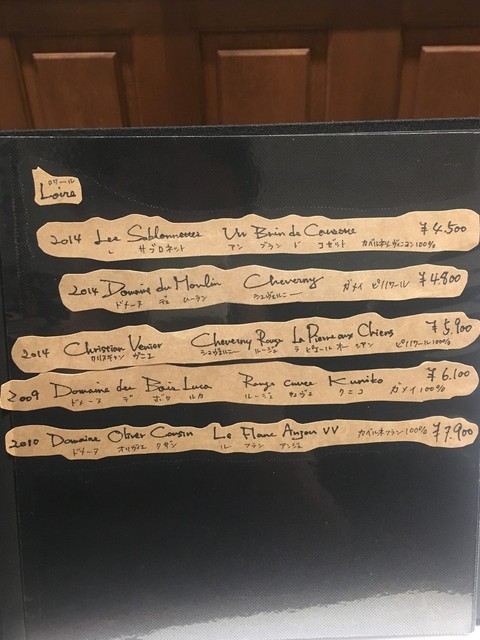 ロワール
Loire
2014 Les Sablonnettes Un Brin de Causette カベルネソーヴィニヨン100% ¥4.500
サブロネット アン ブラン ド コゼット
2014 Domaine du Moulin Cheverny ガメイ ピノノワール ¥4.800
ドメーヌ デュ ムーラン シュヴェルニー
2014 Christian Venier Cheverny Rouge La Pierre aux Chiens ピノノワール100% ¥5.900
クリスチャン ヴニエ シュヴェルニー ルージュ ラ ピエール オー シアン
2009 Domaine des Bois Luca Rouge cuvee Kuniko ガメイ100% ¥6.100
ドメーヌ デ ボワ ルカ ルージュ キュヴェ クニコ
2010 Domaine Oliver Cousin Le Franc Anjou VV カベルネフラン100% ¥7.900
ドメーヌ オリヴィエ クザン ル フラン アンジュ